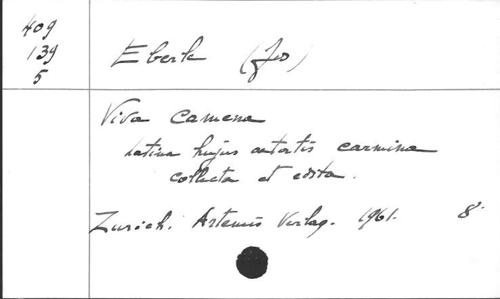 409
139
5
Eberle (Jo)
Viva Camena
Latina hujus aetatis carmina
collecta et edita.
Zurich. Artemis Verlag. 1961. 8°